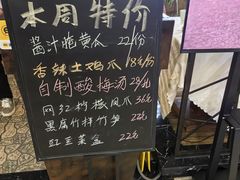 本周特价
酱汁脆黄瓜 22/份
香辣土鸡爪 18元/份
自制酸梅汤 28元/
网红柠檬凤爪 36元
黑腐竹拌竹笋 22元
豇豆菜盒 22元